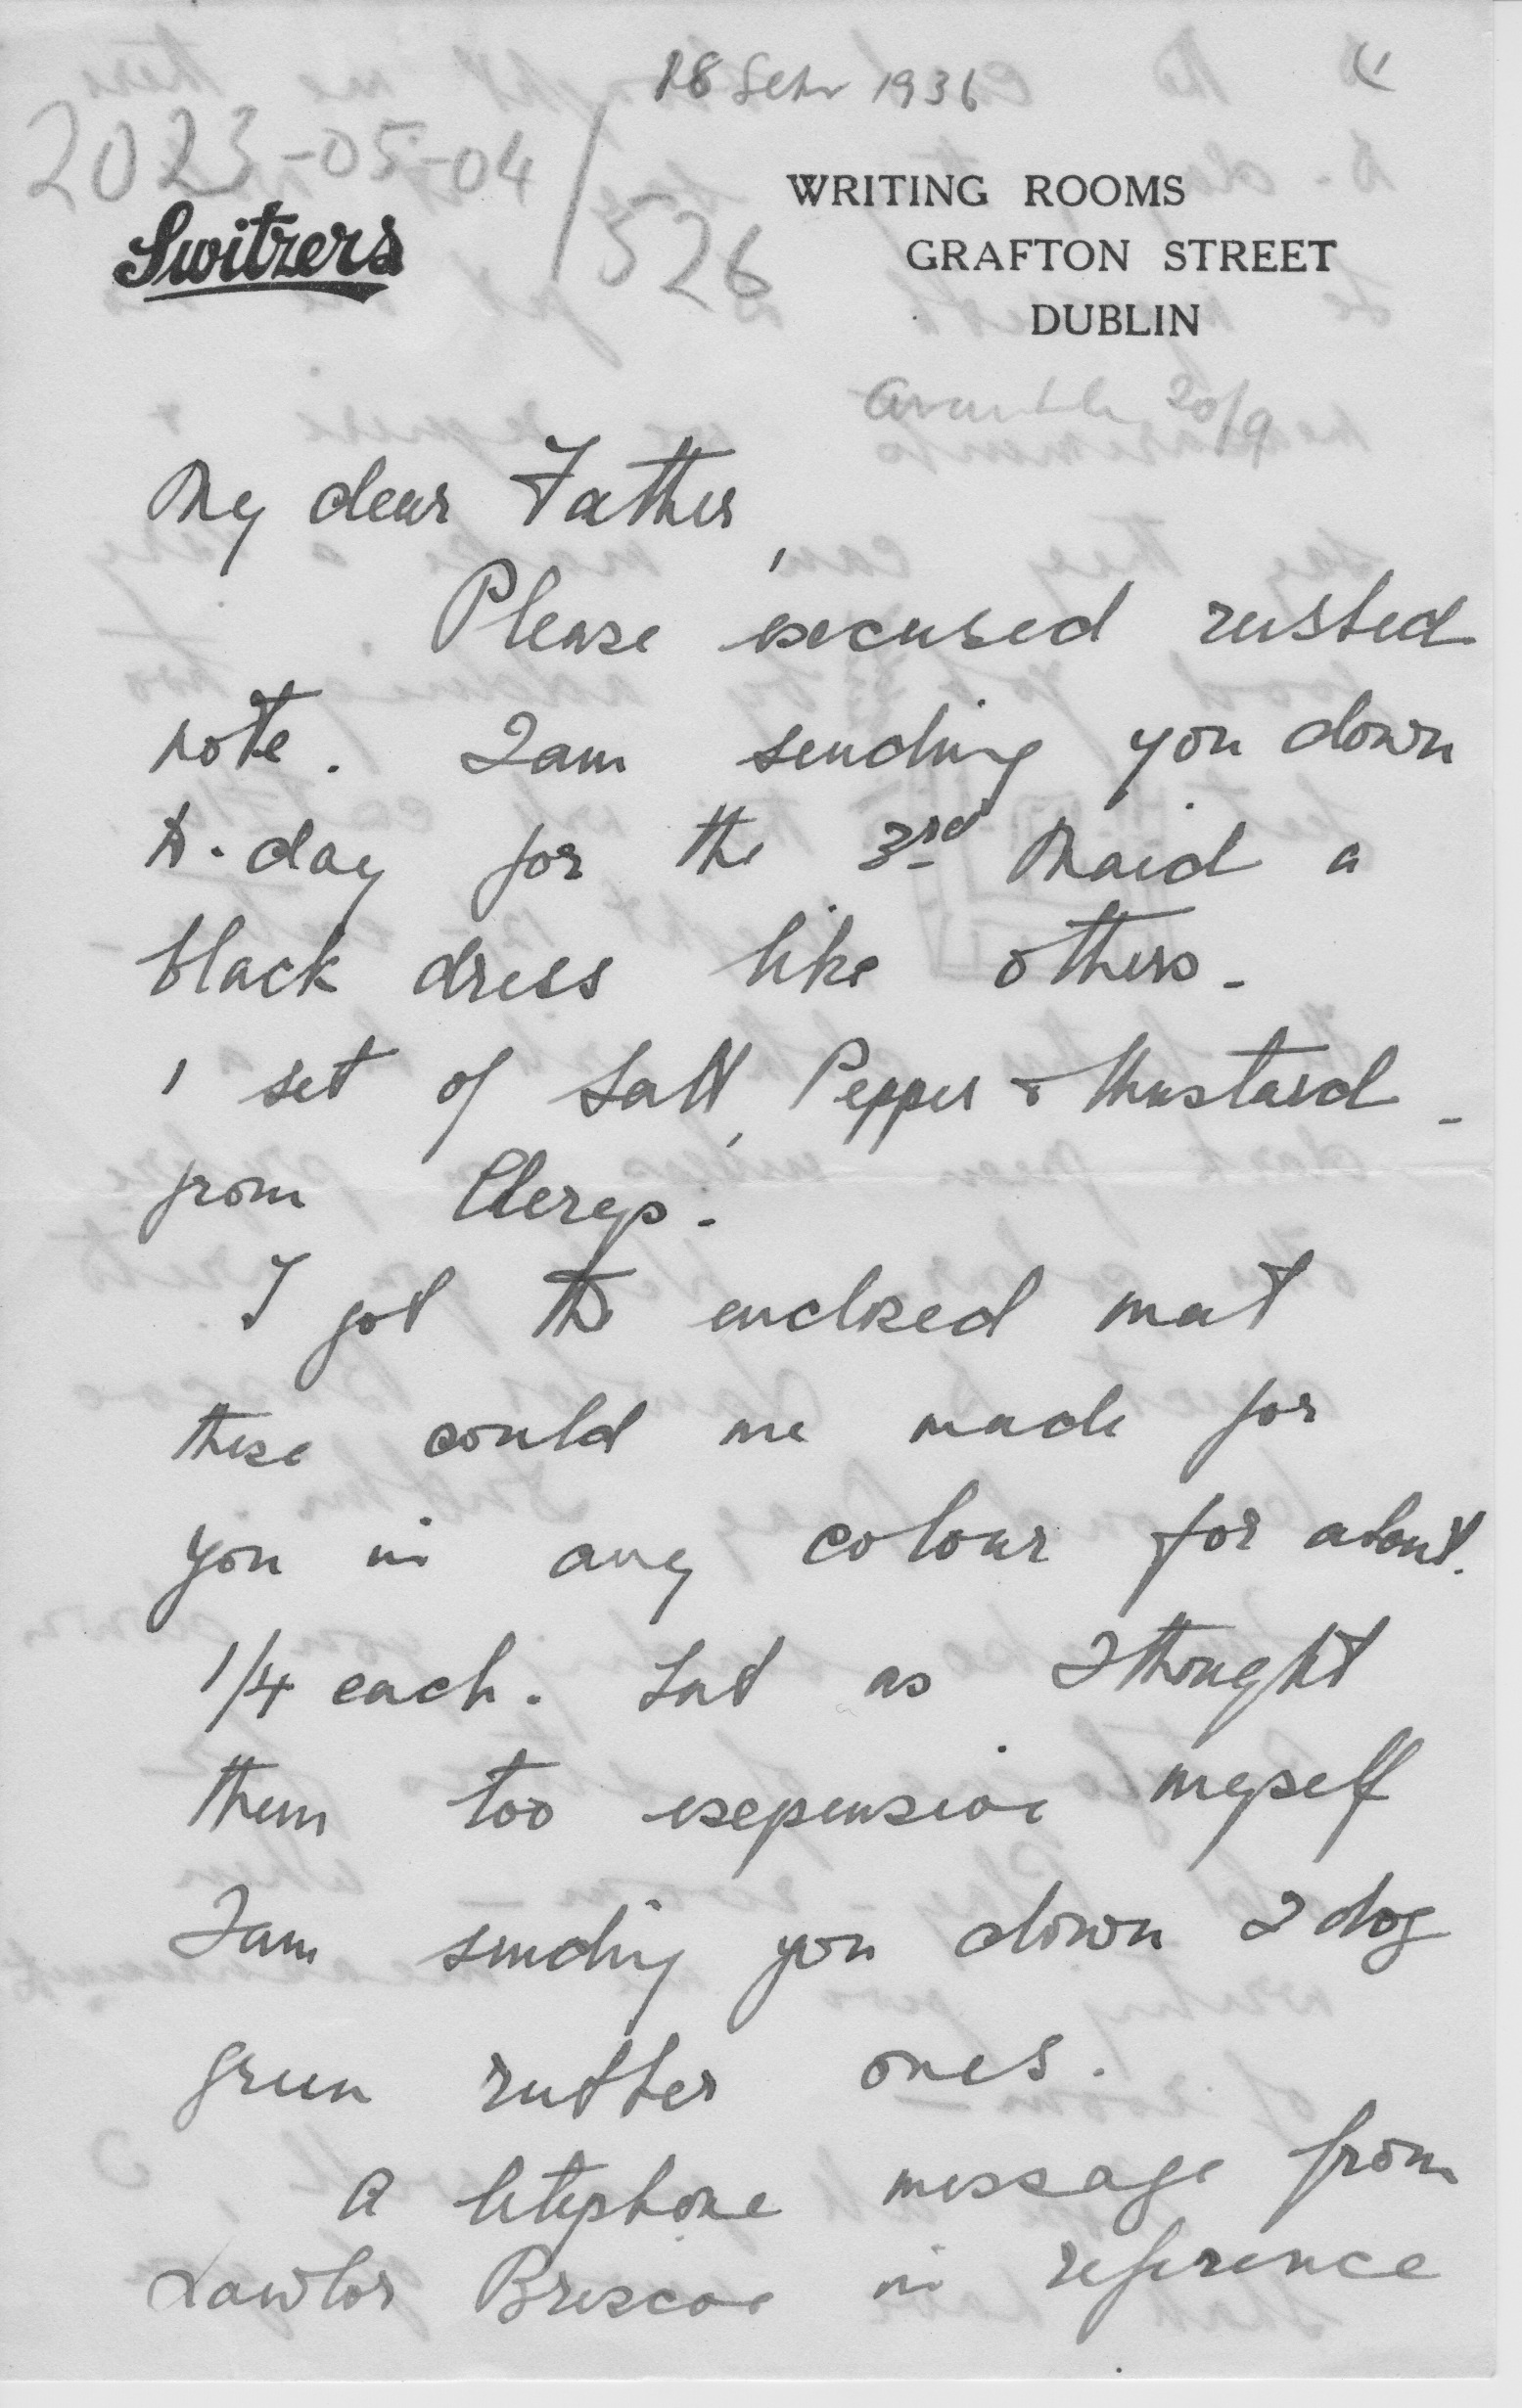 18 Septr 1936
2023-05-04/526
Switzers
WRITING ROOMS
GRAFTON STREET
DUBLIN
20/9
My dear Father,
Please excused rushed
note. I am sending you down
to-day for the 3rd Maid a
black dress like others -
1 set of Salt, Pepper & Mustard -
from Clerys.
I got the enclosed mat
these could me made for
you in any colour for about.
1/4 each. but as I thought
them too expensive myself
I am sending you down 2 dog
green rubber ones.
A telephone message from
Lawlor Briscoe in reference